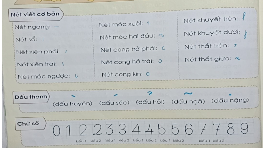 Nét viết cơ bản
Nét ngang
Nét móc xuôi
Nét khuyết trên
Nét móc hai đầu
Nét khuyết dưới
Nét xiên phải
Nét cong hở phải
Nét thắt trên
Nét xiên trái
Nét cong hở trái
Nét thắt giữa
Nét móc ngược
Nét cong kín
Dấu thanh
(dấu huyền) (dấu sắc) (dấu hỏi) (dấu ngã) (dấu nặng)
Chữ số
0 1 2 2 3 3 4 4 5 5 6 7 7 8 9